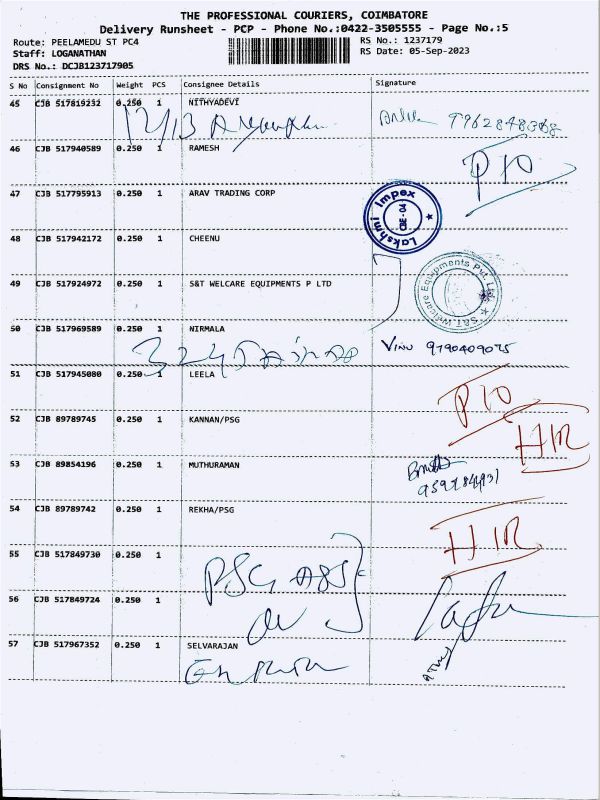 THE PROFESSIONAL COURIERS, COIMBATORE
Delivery Runsheet - PCP - Phone No.:0422-3505555 - Page No.:5
Route: PEELAMEDU ST PC4 RS No.: 1237179
Staff: LOGANATHAN RS Date: 05-Sep-2023
DRS No.: DCJB123717905
S No Consignment No Weight PCS Consignee Details Signature
45 CJB 517819232 0.250 1 NITHYADEVI
7962848368
46 CJB 517940589 0.250 1 RAMESH
P10
47 CJB 517795913 0.250 1 ARAV TRADING CORP
Lakshmi Impex
CBE-04
48 CJB 517942172 0.250 1 CHEENU
49 CJB 517924972 0.250 1 S&T WELCARE EQUIPMENTS P LTD
S&T Welcare Equipments Pvt. Ltd.
50 CJB 517969589 0.250 1 NIRMALA
324 VINU 9790409075
51 CJB 517945080 0.250 1 LEELA
P10
52 CJB 89789745 0.250 1 KANNAN/PSG
HIR
53 CJB 89854196 0.250 1 MUTHURAMAN
54 CJB 89789742 0.250 1 REKHA/PSG
HIR
55 CJB 517849730 0.250 1
PSG
56 CJB 517849724 0.250 1
57 CJB 517967352 0.250 1 SELVARAJAN